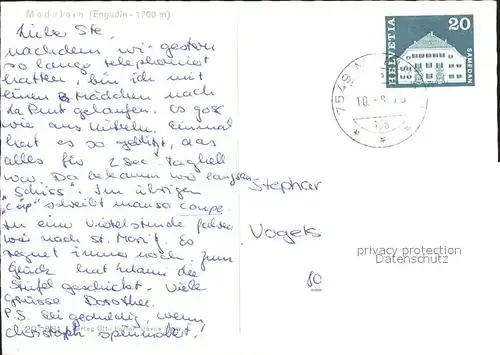 Madulain (Engadin - 1700 m)
Liebe Ste,
nachdem wir gestern
so lange telephoniert
hatten, bin ich mit
einem Mädchen nach
La Punt gelaufen. Es goss
wie aus Kübeln. Einmal
hat es so geblitzt, das
alles für 2 Sec. Taghell
war. Da bekamen wir langsam
"Schiss". Im übrigen
"Cup" schreibt man so: Coupe.
In eine Viertelstunde fahren
wir nach St. Moritz. Es
regnet immer noch. Zum
Glück hat Mami die
Stifel geschickt. Viele
Grüsse Dorothee.
P.S. Sei geduldig, wenn
Christoph
HELVETIA
20
SAMEDAN
7549
10.-8.
Stephan
Vogels
80
privacy protection
Datenschutz